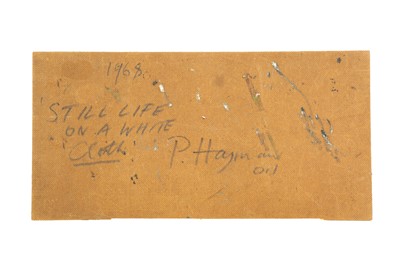 1968.
STILL LIFE
ON A WHITE
Cloth
P. Hayman
oil